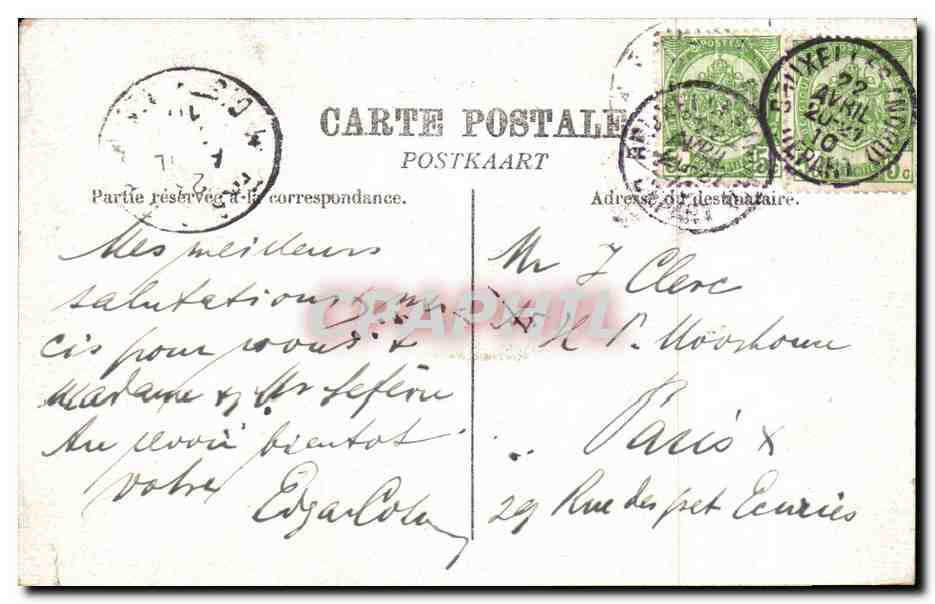 CARTE POSTALE
POSTKAART
Partie réservée à la correspondance.
Adresse du destinataire.
BRUXELLES (NORD)
22
AVRIL
20-21
10
DEPART
POSTES
5 c
Mes meilleurs
salutations & mer-
cis pour vous &
Madame & Mr Lefèvre
Au revoir bientot
votre
Edgar
Mr J Clerc
H P. Moorhouse
Paris x
29 Rue des pet Ecuries
CRAPHIL